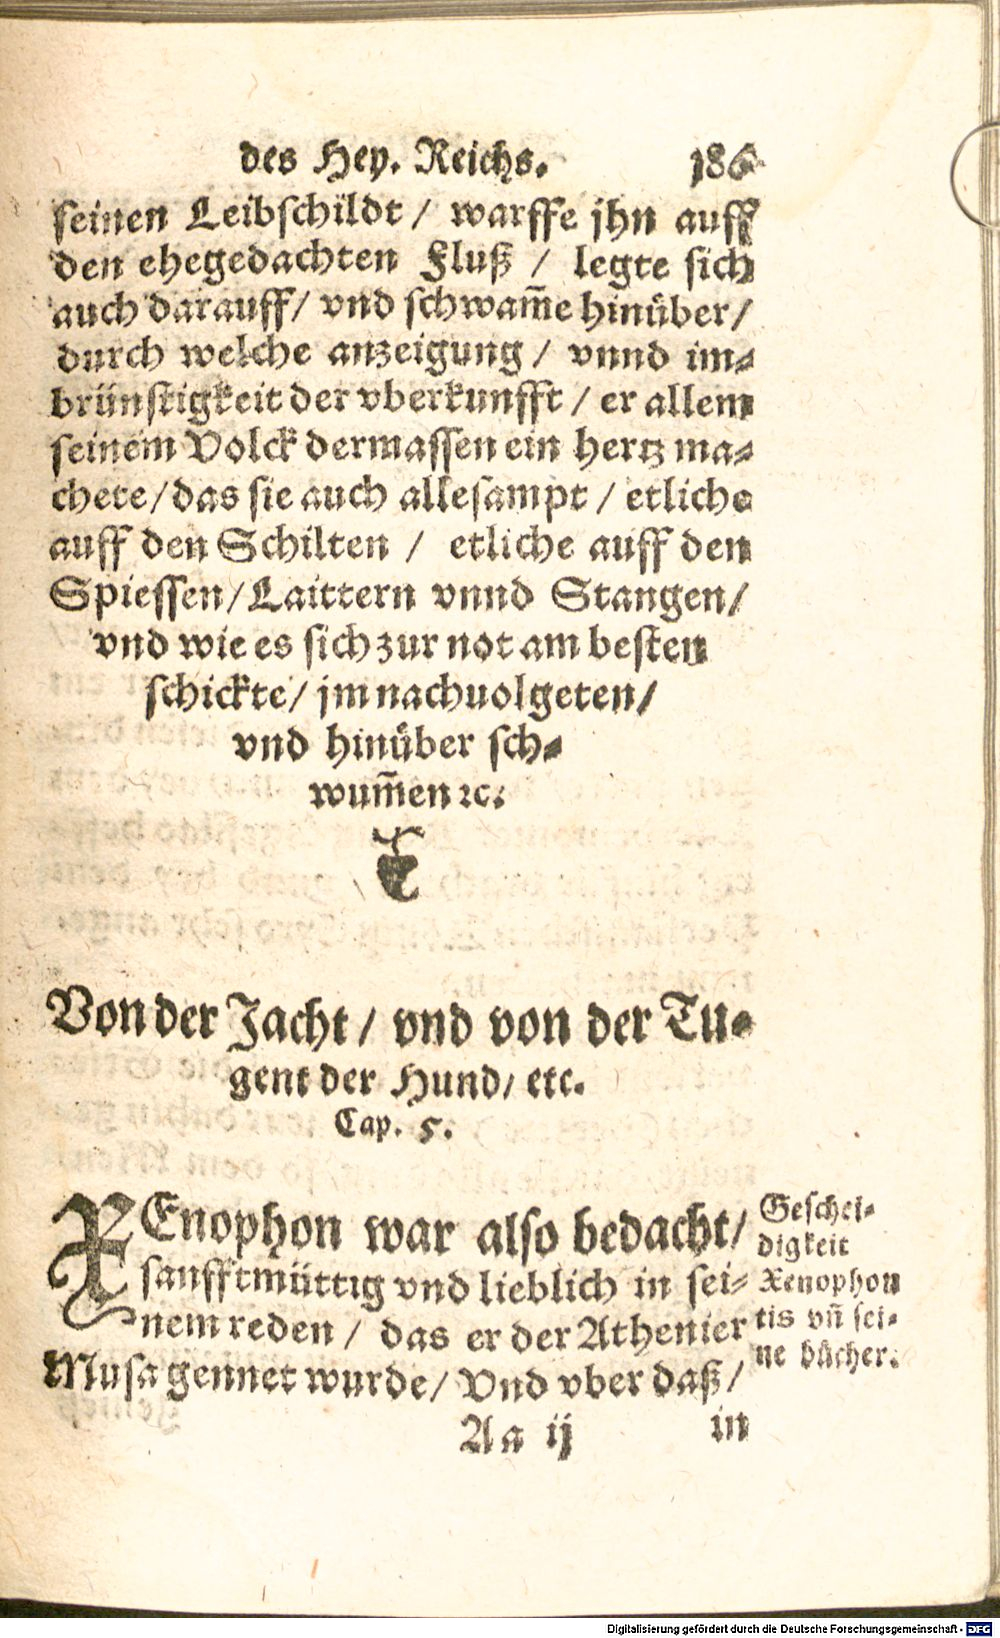 des Hey. Reichs. 186
seinen Leibschildt / warffe jhn auff
den ehegedachten Fluß / legte sich
auch darauff/ vnd schwam̃e hinüber/
durch welche anzeigung / vnnd im-
brünstigkeit der vberkunfft / er allem
seinem Volck dermassen ein hertz ma-
chete/ das sie auch allesampt / etliche
auff den Schilten / etliche auff den
Spiessen/ Laittern vnnd Stangen/
vnd wie es sich zur not am besten
schickte/ jm nachuolgeten/
vnd hinüber sch-
wum̃en ꝛc.
Von der Jacht / vnd von der Tu-
gent der Hund/ etc.
Cap. 5.
XEnophon war also bedacht/
sanfftmüttig vnd lieblich in sei-
nem reden / das er der Athenier
Musa gennet wurde/ Vnd vber daß/
Geschei-
digkeit
Xenophon
tis vñ sei-
ne bücher.
Aa ij in
Digitalisierung gefördert durch die Deutsche Forschungsgemeinschaft - DFG